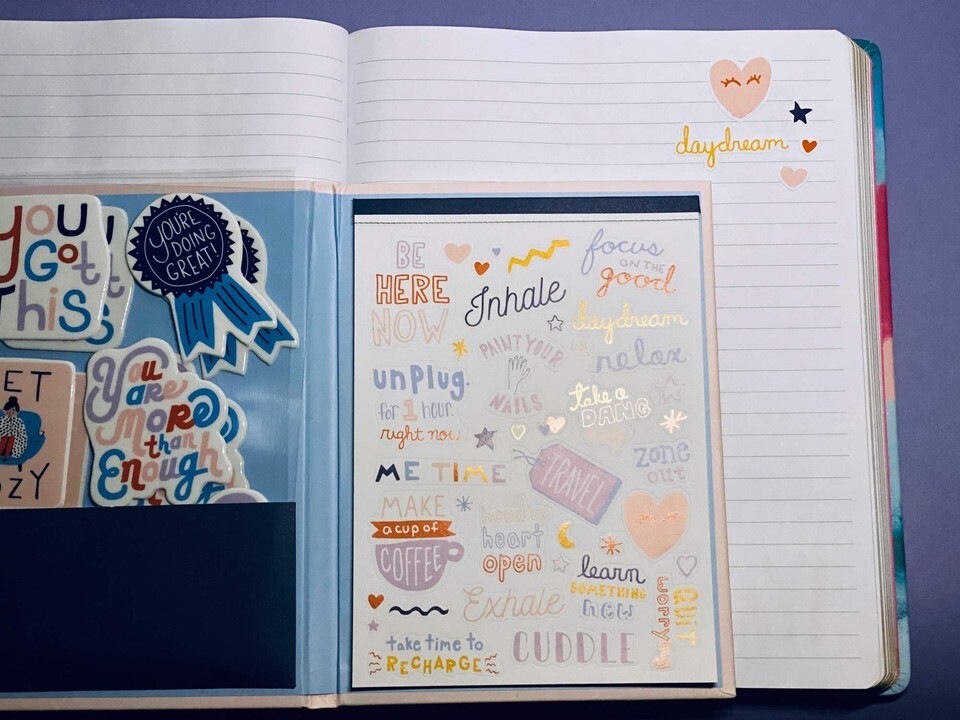 you
Got
This
YOU'RE
DOING
GREAT!
You
are
MORE
than
Enough
daydream
BE
HERE
NOW
Inhale
focus
ON THE
good
daydream
PAINT YOUR
NAILS
relax
unplug.
for 1 hour.
right now.
take a
DANG
ME TIME
TRAVEL
zone
out
MAKE
a cup of
COFFEE
heart
open
learn
SOMETHING
new
QUIT
worrying
Exhale
take time to
RECHARGE
CUDDLE